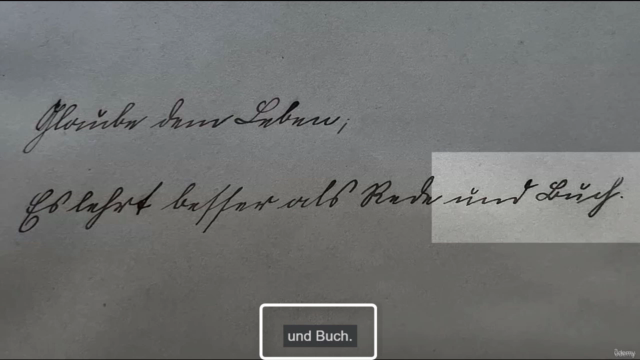 Glaube dem Leben;
Es lehrt besser als Rede und Buch.
und Buch.
ûdemy